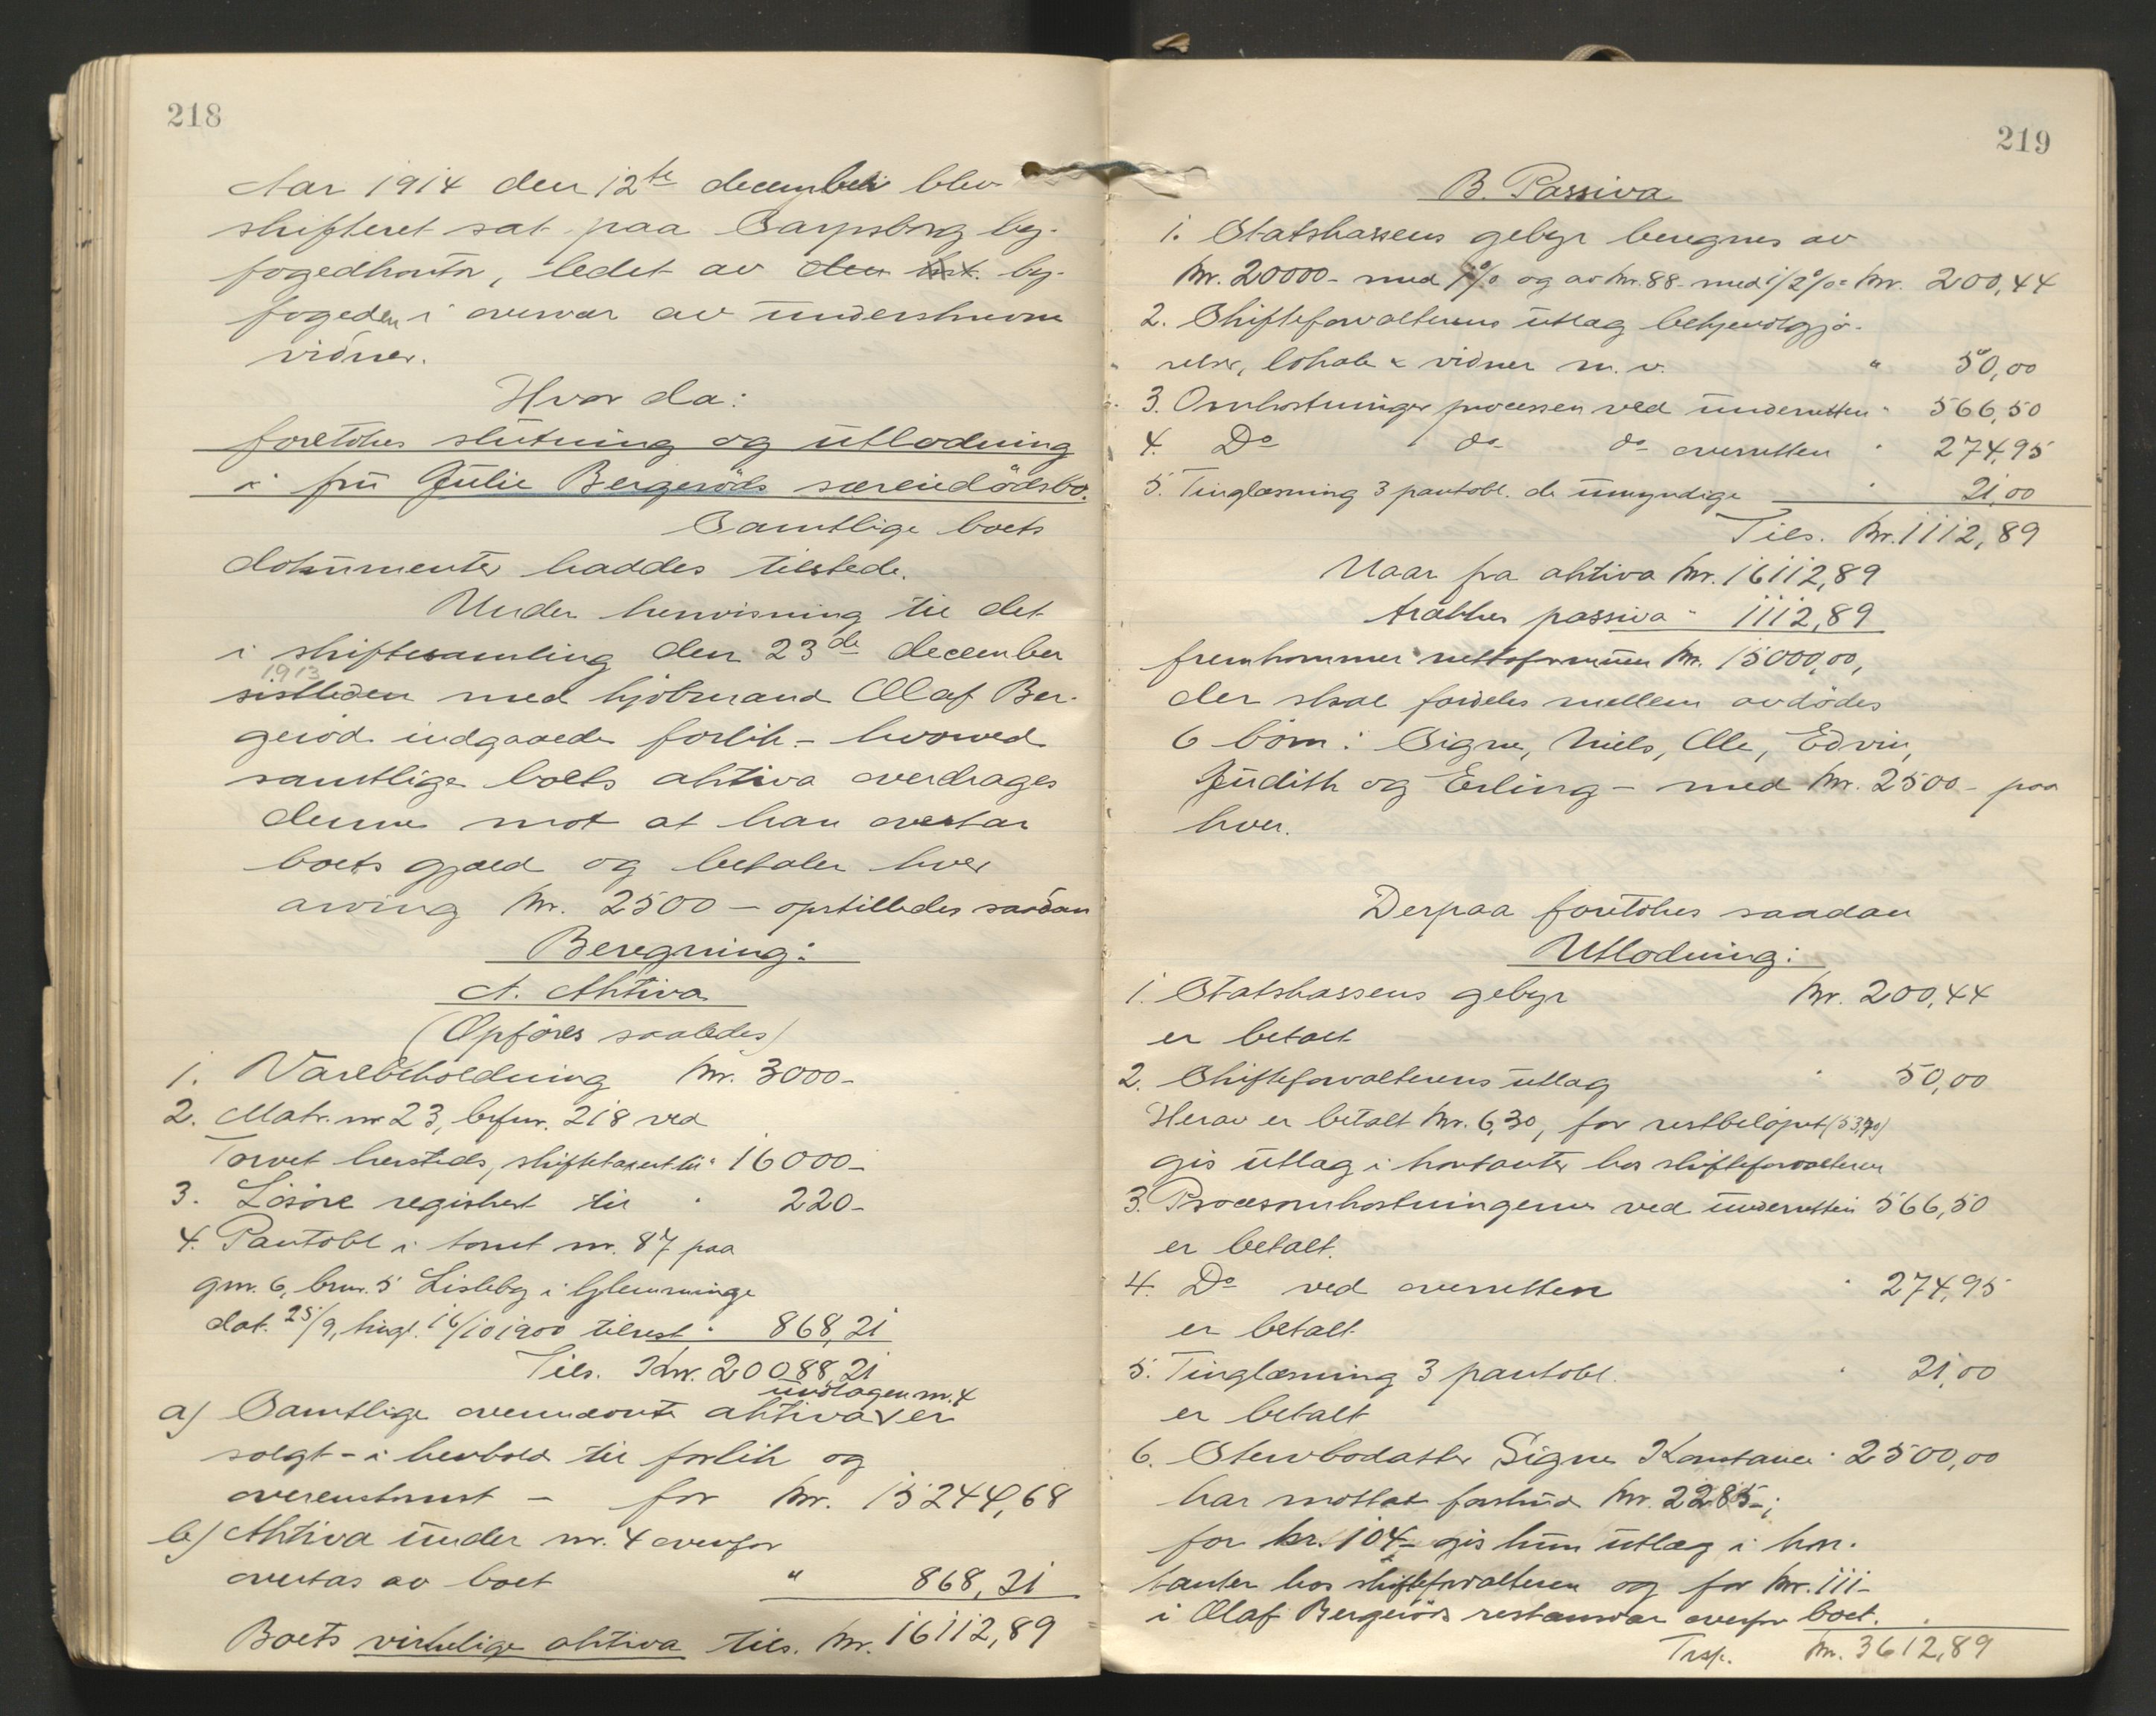 218
Aar 1914 den 12te december blev
skifteret sat paa Sarpsborg by-
fogedkontor, ledet av den kst. by-
fogeden i overvær av underskrevne
vidner.
Hvor da:
foretokes slutning og utlodning
i fru Julie Bergerøds særeiedødsbo.
Samtlige boets
dokumenter haddes tilstede.
Under henvisning til det
i skiftesamling den 23de december
1913
sistleden med kjøbmand Olaf Ber-
gerød indgaaede forlik – hvorved
samtlige boets aktiva overdrages
denne mot at han overtar
boets gjæld og betaler hver
arving kr. 2500 – opstilledes saadan
Beregning:
A. Aktiva
(Opføres saaledes)
1. Varebeholdning kr. 3000-
2. Matr. nr 23, brfnr. 218 ved
Torvet hersteds, skiftetaxert til " 16000-
3. Løsøre registrert til " 220-
4. Pantobl i tomt nr. 87 paa
gnr. 6, brnr. 5 Lisleby i Glemminge
dat. 25/9, tingl. 16/10 1900 tilrest " 868,21
Tils. Kr. 20088,21
undtagen nr. 4
a) Samtlige ovennævnte aktiva v er
solgt – i henhold til forlik og
overenskomst – for kr. 15244,68
b) Aktiva under nr. 4 ovenfor
overtas av boet " 868,21
Boets virkelige aktiva tils. kr. 16112,89
219
B. Passiva
1. Statskassens gebyr beregnes av
kr. 20000- med 1% og av kr. 88- med 1/2% = kr. 200,44
2. Skifteforvalterens utlag bekjendtgjø-
relser, lokale & vidner m. v. " 50,00
3. Omkostninger processen ved underretten " 566,50
4. Do do do overretten " 274,95
5. Tinglæsning 3 pantobl. de umyndige " 21,00
Tils. kr. 1112,89
Naar fra aktiva kr. 16112,89
trækkes passiva " 1112,89
fremkommer nettoformuen kr. 15000,00,
der skal fordeles mellem avdødes
6 børn: Signe, Niels, Ole, Edvin,
Judith og Erling – med kr. 2500- paa
hver.
Derpaa foretokes saadan
Utlodning:
1. Statskassens gebyr kr. 200,44
er betalt
2. Skifteforvalterens utlag " 50,00
Herav er betalt kr. 6,30, for restbeløpet (53,70)
gis utlag i kontanter hos skifteforvalteren
3. Procesomkostningerne ved underretten 566,50
er betalt.
4. Do ved overretten " 274,95
er betalt
5. Tinglæsning 3 pantobl. " 21,00
er betalt
6. Stervbodatter Signe Konstance " 2500,00
har mottat forskud kr. 2285-;
for kr. 104- gis hun utlæg i kon-
tanter hos skifteforvalteren og for kr. 111-
i Olaf Bergerøds restansvar overfor boet.
Trsp. kr. 3612,89